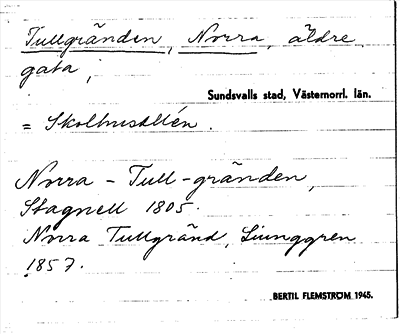 Tullgränden, Norra, äldre
gata;
Sundsvalls stad, Västernorrl. län.
= Skolhusallén.
Norra - Tull-gränden,
Stagnell 1805.
Norra Tullgränd, Ljunggren
1857.
BERTIL FLEMSTRÖM 1945.